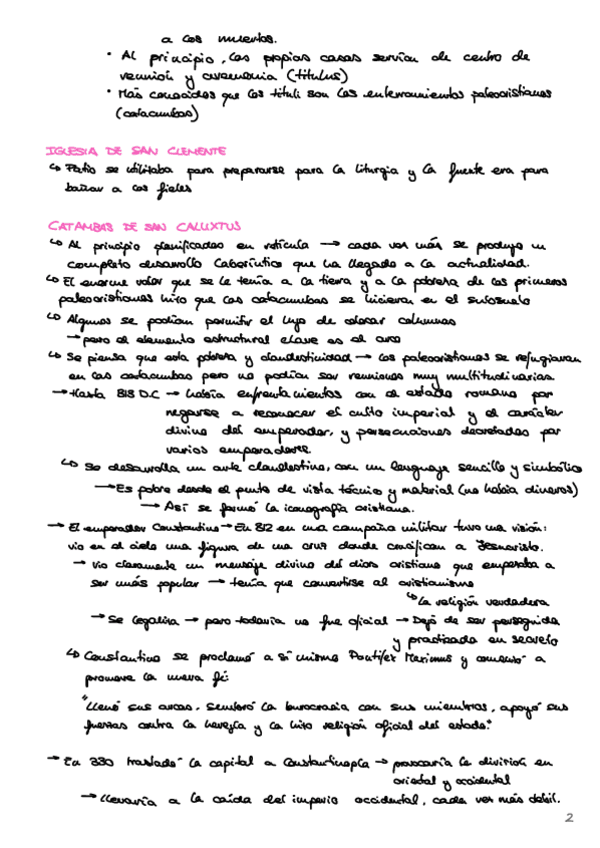 a los muertos.
• Al principio, las propias casas servían de centro de
reunión y ceremonia (titulus)
• Más conocidos que los tituli son los enterramientos paleocristianos
(catacumbas)
IGLESIA DE SAN CLEMENTE
↳ Patio se utilitaba para prepararse para la liturgia y la fuente era para
bañar a los fieles
CATAMBAS DE SAN CALUXTUS
↳ Al principio planificadas en retícula → cada vez más se produjo un
completo desarrollo laberíntico que ha llegado a la actualidad.
↳ El enorme valor que se le tenía a la tierra y a la pobreza de los primeros
paleocristianos hizo que las catacumbas se hicieran en el subsuelo
↳ Algunos se podían permitir el lujo de colocar columnas
→ pero el elemento estructural clave es el arco
↳ Se piensa que esta pobreza y clandestinidad → los paleocristianos se refugiaran
en las catacumbas pero no podían ser reuniones muy multitudinarias.
→ Hasta 313 D.C → había enfrentamientos con el estado romano por
negarse a reconocer el culto imperial y el carácter
divino del emperador, y persecuciones decretadas por
varios emperadores
↳ Se desarrolla un arte clandestino, con un lenguaje sencillo y simbólico
→ Es pobre desde el punto de vista técnico y material (no había dineros)
→ Así se formó la iconografía cristiana.
→ El emperador Constantino → En 312 en una campaña militar tuvo una visión:
vio en el cielo una figura de una cruz donde crucifican a Jesucristo.
→ Vio claramente un mensaje divino del dios cristiano que empezaba a
ser más popular → tenía que convertirse al cristianismo
↳ La religión verdadera
→ Se legaliza → pero todavía no fue oficial → Dejó de ser perseguida
y practicada en secreto
↳ Constantino se proclamó a sí mismo Pontifex Maximus y comenzó a
promover la nueva fé:
"Llenó sus arcas, sembró la burocracia con sus miembros, apoyó sus
fuerzas contra la herejía y la hizo religión oficial del estado."
→ En 330 trasladó la capital a Constantinopla → provocaría la división en
oriental y occidental
→ llevaría a la caída del imperio occidental, cada vez más débil.
2